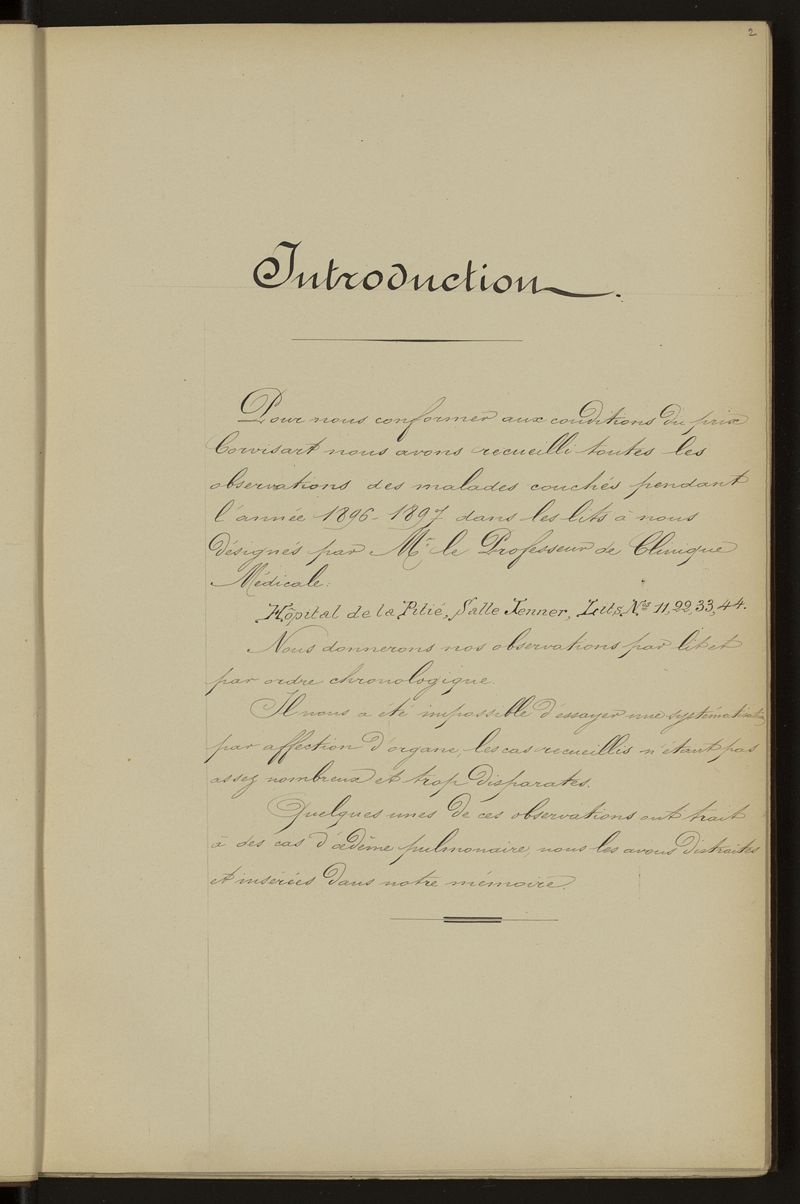 2
Introduction.
Pour nous conformer aux conditions du prix
Corvisart nous avons recueilli toutes les
observations des malades couchés pendant
l'année 1896-1897 dans les lits à nous
désignés par Mr. le Professeur de Clinique
Médicale:
Hôpital de la Pitié, Salle Jenner, Lits Nos 11, 22, 33, 44.
Nous donnerons nos observations par lit et
par ordre chronologique.
Il nous a été impossible d'essayer une systématisation
par affection d'organe, les cas recueillis n'étant pas
assez nombreux et trop disparates.
Quelques unes de ces observations ont trait
à des cas d'œdême pulmonaire, nous les avons distraites
et insérées dans notre mémoire.